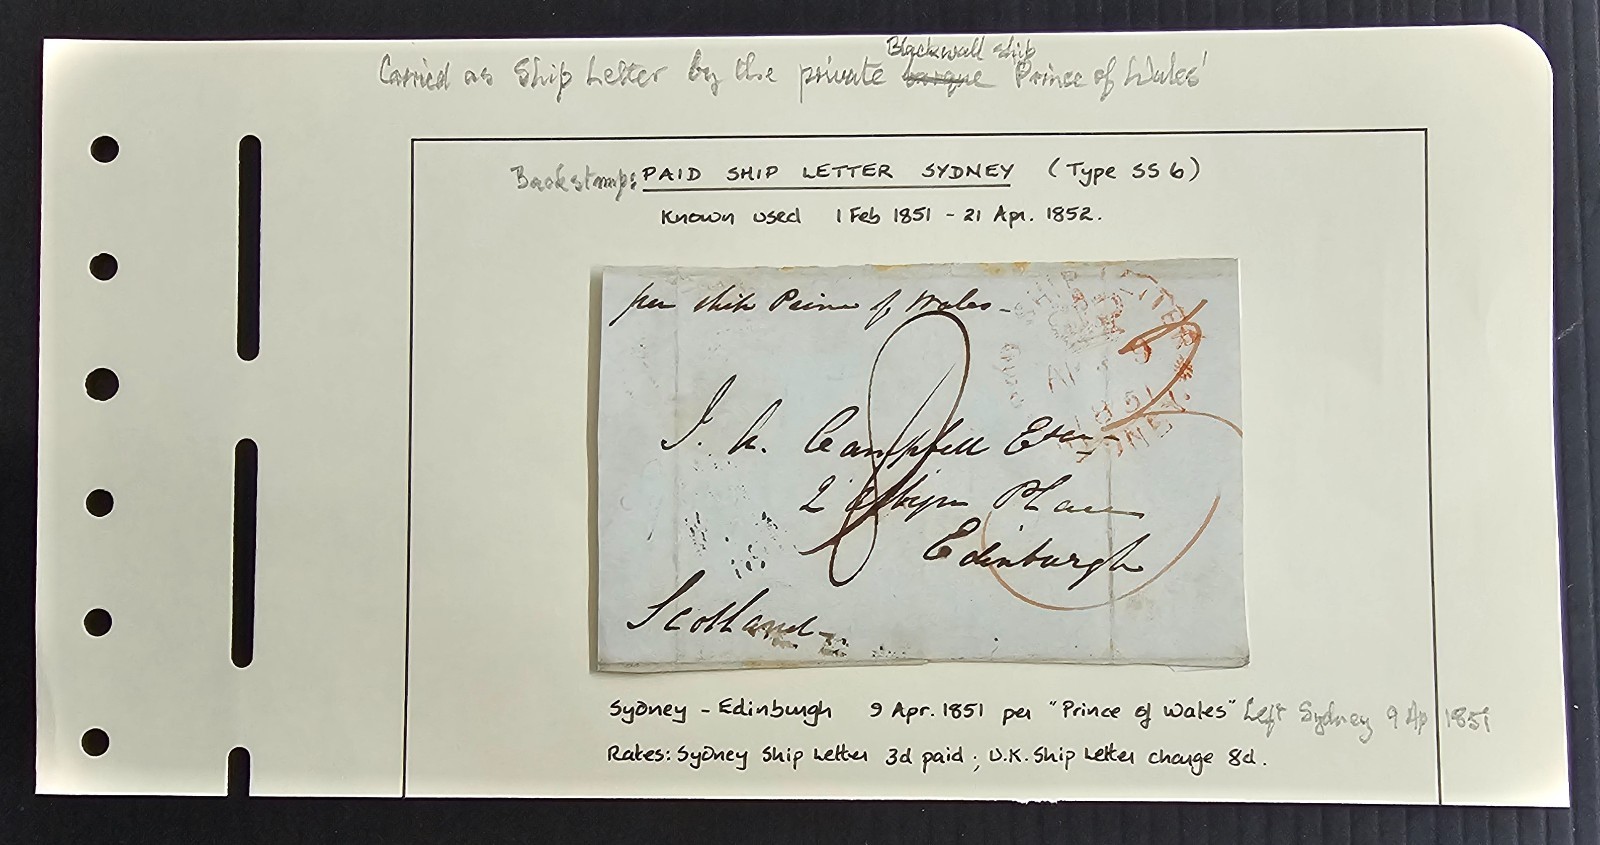 Blackwall ship
Carried as Ship Letter by the private barque Prince of Wales'
Backstamp: PAID SHIP LETTER SYDNEY (Type SS 6)
Known used 1 Feb 1851 - 21 Apr. 1852.
per ship Prince of Wales -
PAID SHIP LETTER
AP 9
1851
SYDNEY
8
J. A. Campbell Esq
2 Albyn Place
Edinburgh
Scotland
Sydney - Edinburgh 9 Apr. 1851 per "Prince of Wales" Left Sydney 9 Ap 1851
Rates: Sydney Ship Letter 3d paid; U.K. Ship Letter charge 8d.